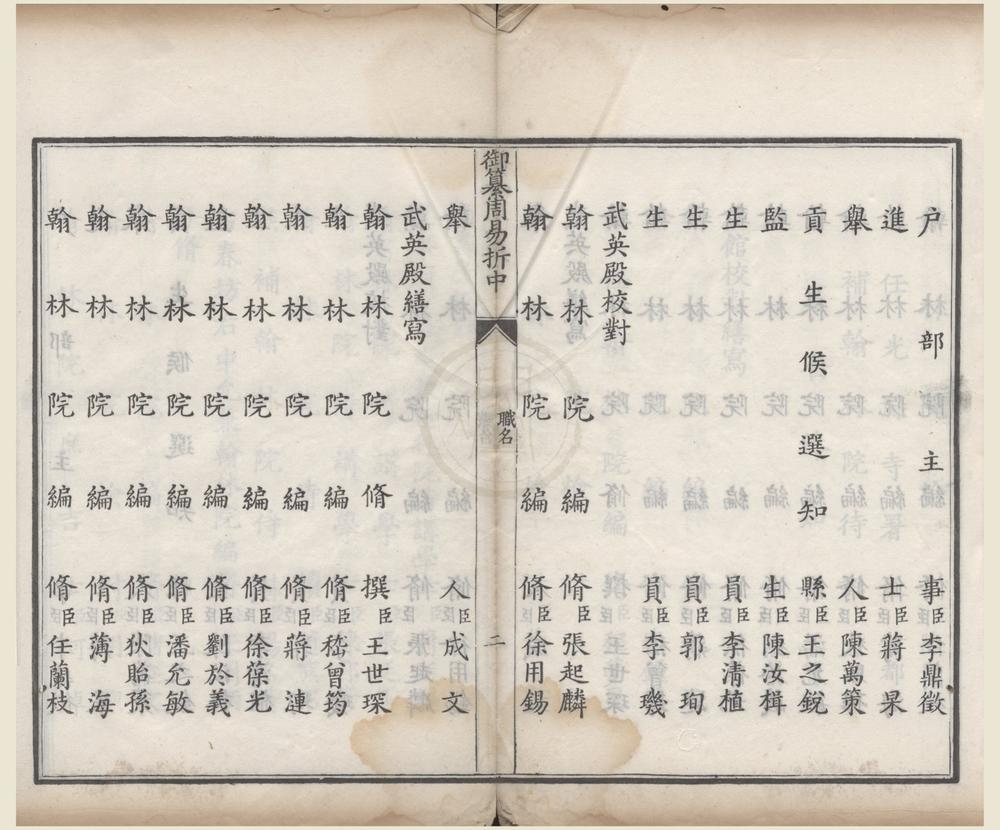 户部主事臣李鼎徵
進士臣蔣杲
舉人臣陳萬策
貢生候選知縣臣王之銳
監生臣陳汝楫
生員臣李清植
生員臣郭珣
生員臣李璣
武英殿校對
翰林院編脩臣張起麟
翰林院編脩臣徐用錫
御纂周易折中
職名
二
舉人臣成文
武英殿繕寫
翰林院脩撰臣王世琛
翰林院編脩臣嵇曾筠
翰林院編脩臣蔣漣
翰林院編脩臣徐葆光
翰林院編脩臣劉於義
翰林院編脩臣潘允敏
翰林院編脩臣狄貽孫
翰林院編脩臣薄海
翰林院編脩臣任蘭枝